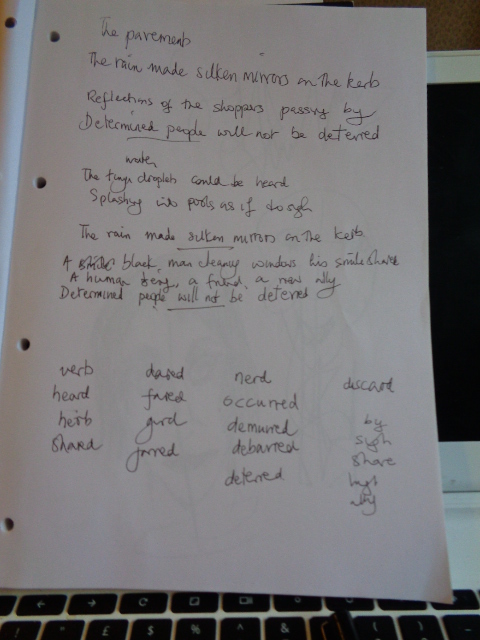 The pavement
The rain made silken mirrors on the kerb
Reflections of the shoppers passing by
Determined people will not be deterred
water
The tiny droplets could be heard
Splashing into pools as if
The rain made silken mirrors on the kerb
A black man cleaning windows his smile shared
A human being, a friend, a new ally
Determined people will not be deterred
verb dared nerd discard
heard fared occurred
herb gird demurred by
shared jarred debarred sigh
deterred share
high
ally
£ $ % ^ & *